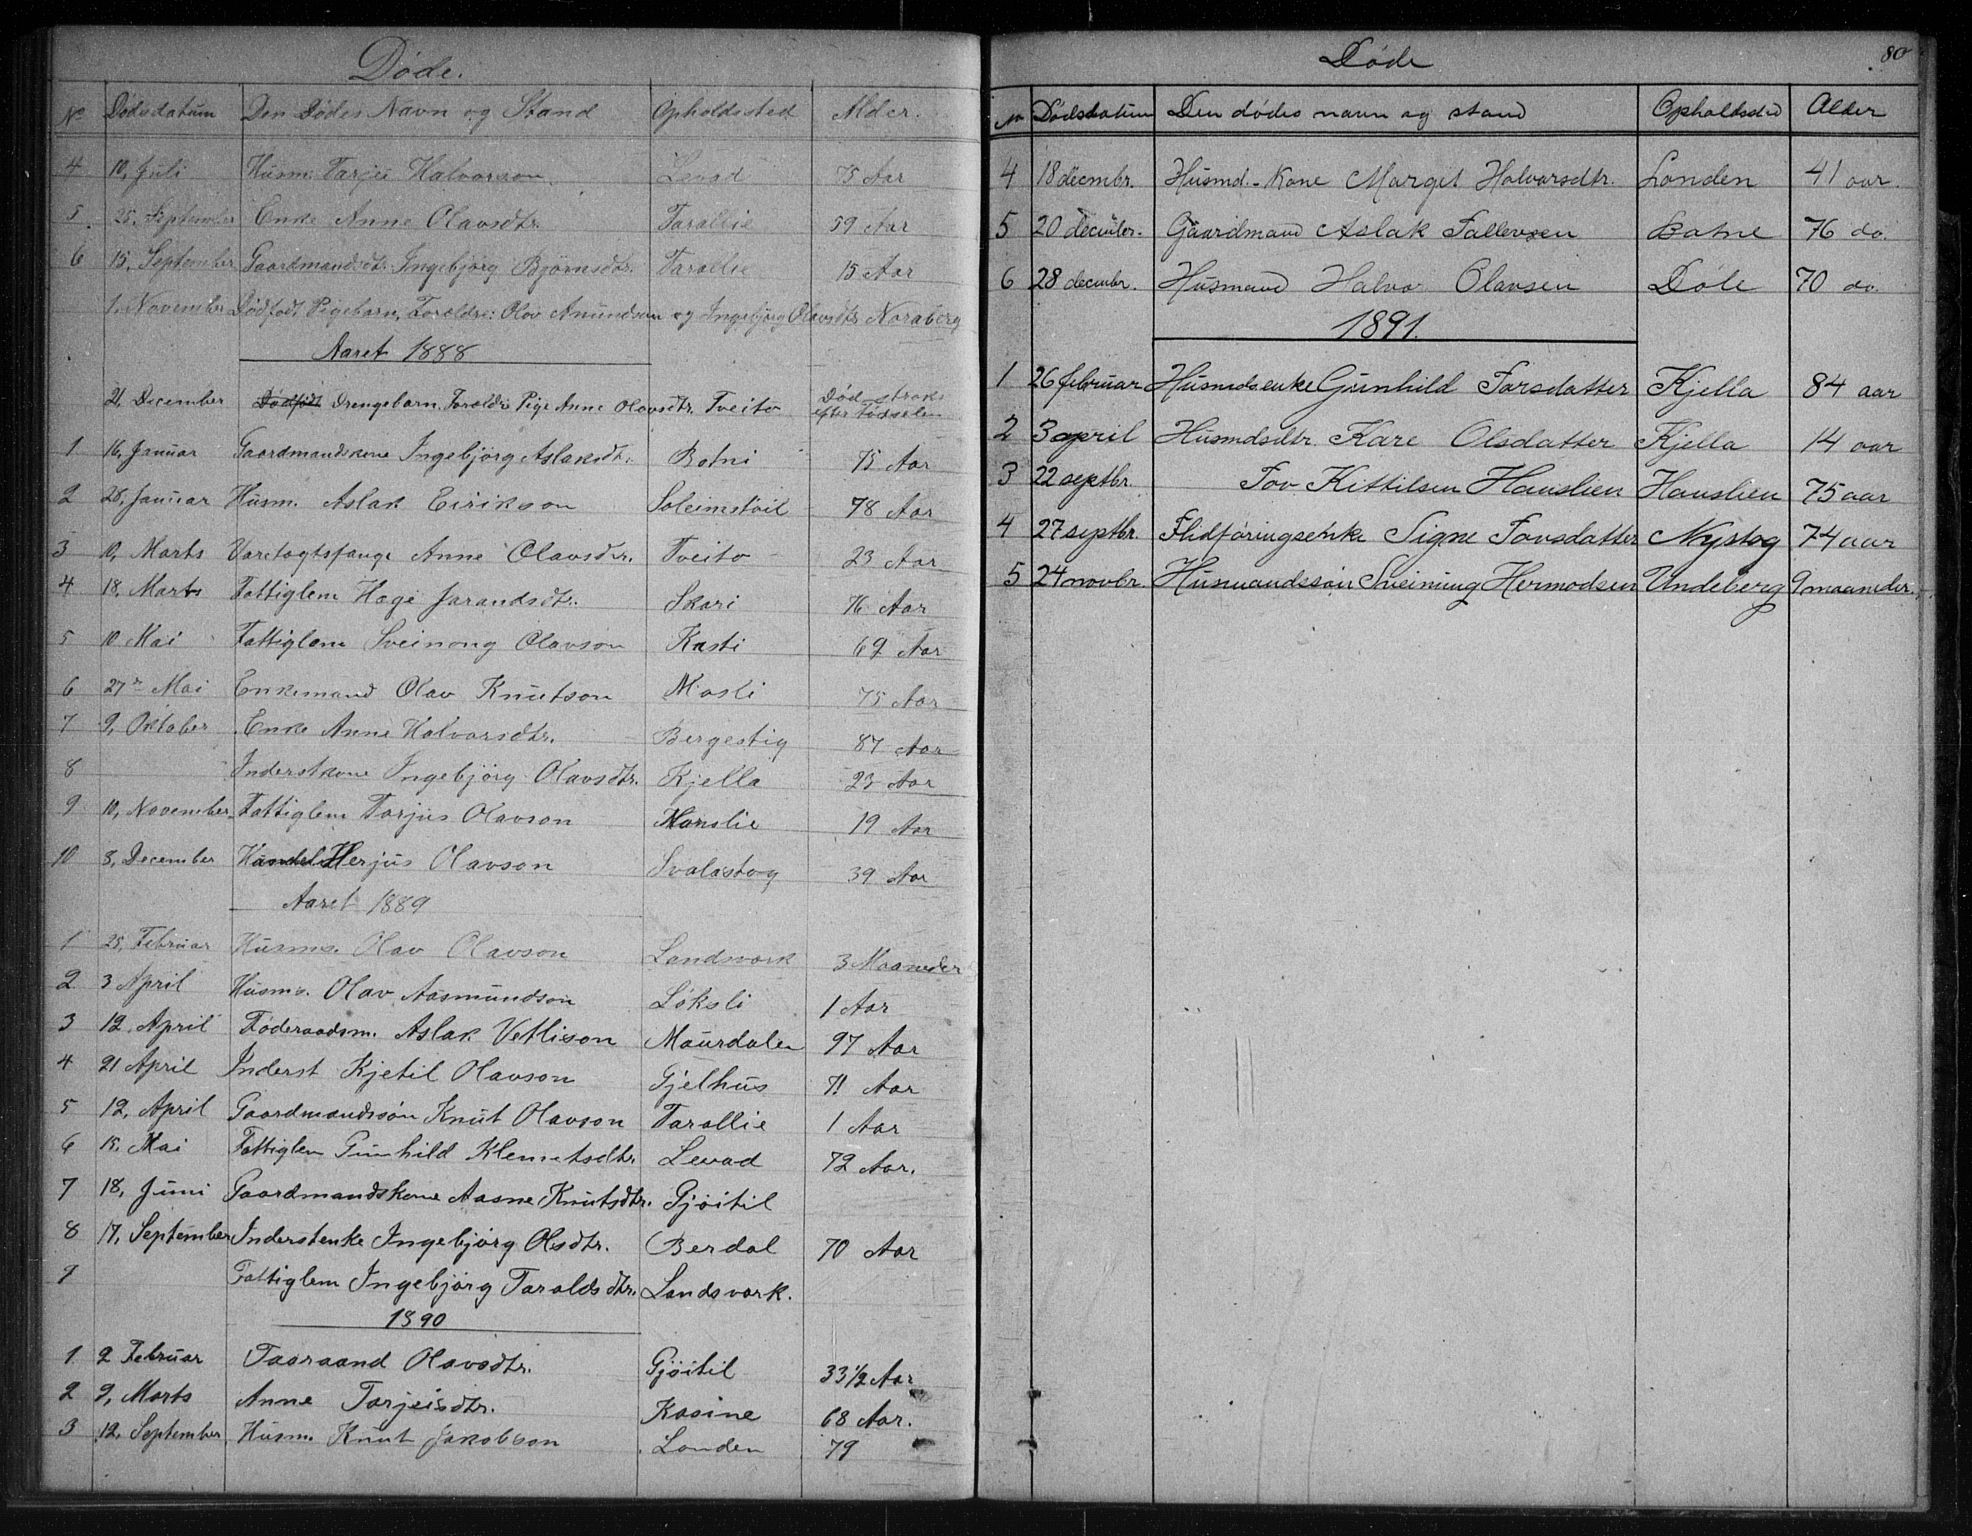 Døde.
No Dødsdatum Den Dødes Navn og Stand Opholdssted Alder.
4 10, Juli Husm. Tarjei Halvorson Levad 75 Aar
5 25, September Enke Anne Olavsdtr. Tarallie 59 Aar
6 15, September Gaardmandsdtr. Ingebjörg Bjørnsdtr. Tarallie 15 Aar
1, November Dødfødt Pigebarn, Forældre: Olav Amundsen og Ingebjørg Olavsdtr. Noraberg
Aaret 1888
21, December Dødfødt Drengebarn. Forældr: Pige Anne Olavsdtr. Tveito Død straks efter Fødselen
1 16, Januar Gaardmandskone Ingebjörg Aslaksdtr. Botni 75 Aar
2 28, Januar Husm. Aslak Eirikson Soleimstöil 78 Aar
3 10, Marts Varetægtsfange Anne Olavsdtr. Tveito 23 Aar
4 18, Marts Fattiglem Hæge Jarandsdtr. Skori 76 Aar
5 10 Mai Fattiglem Sveinong Olavson Kasti 69 Aar
6 27de Mai Enkemand Olav Knutson Mosli 75 Aar
7 9, Oktober Enke Anne Halvorsdtr. Bergestig 87 Aar
8 Inderstkone Ingebjörg Olavsdtr. Kjella 23 Aar
9 10, November Fattiglem Tarjus Olavson Hanslie 19 Aar
10 8, December Herjus Olavson Svalastog 39 Aar
Aaret 1889
1 25, Februar Husms. Olav Olavson Landsvork 3 Maaneder
2 3 April Husms. Olav Aasmundson Löksli 1 Aar
3 12, April Föderaadsm. Aslak Vetlison Maurdalen 97 Aar
4 21 April Inderst Kjetil Olavson Gjelhus 71 Aar
5 12, April Gaardmandssön Knut Olavson Tarallie 1 Aar
6 15, Mai Fattiglem Gunhild Klemetsdtr. Levad 72 Aar.
7 18, Juni Gaardmandskone Aasne Knutsdtr. Gjöitil
8 17, September Inderstenke Ingebjörg Olsdtr. Berdal 70 Aar
9 Fattiglem Ingebjörg Taraldsdtr. Landsvork.
1890
1 2 Februar Taaraand Olavsdtr. Gjöitil 33 1/2 Aar
2 9, Marts Anne Tarjeisdtr. Kasine 68 Aar.
3 12, September Husm. Knut Jakobson Londen 79
Døde 80
No Dødsdatum Den dødes navn og stand Opholdssted Alder
4 18 decmbr. Husmd.-Kone Margit Halvorsdtr. Londen 41 aar.
5 20 decmbr. Gaardmand Aslak Tallevsen Botne 76 do.
6 28 decmbr. Husmand Halvor Olavsen Døle 70 do.
1891.
1 26 februar Husmdsenke Gunhild Torsdatter Kjella 84 aar
2 3 april Husmdsdtr. Kare Olsdatter Kjella 14 aar
3 22 septbr. Tov Kittilsen Hanslien Hanslien 75 aar
4 27 septbr. Flidføringsenke Signe Tovsdatter Nystog 74 aar
5 24 novbr. Husmandssøn Sveinung Hermodsen Undeberg 9 maaneder.